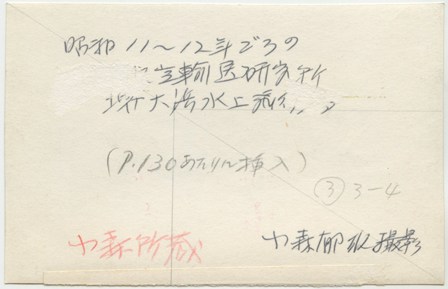 昭和11〜12年ごろの
空輸送研究所
大浜水上
(P.130あたりに挿入)
③ 3-4
小森所蔵
小森郁 撮影